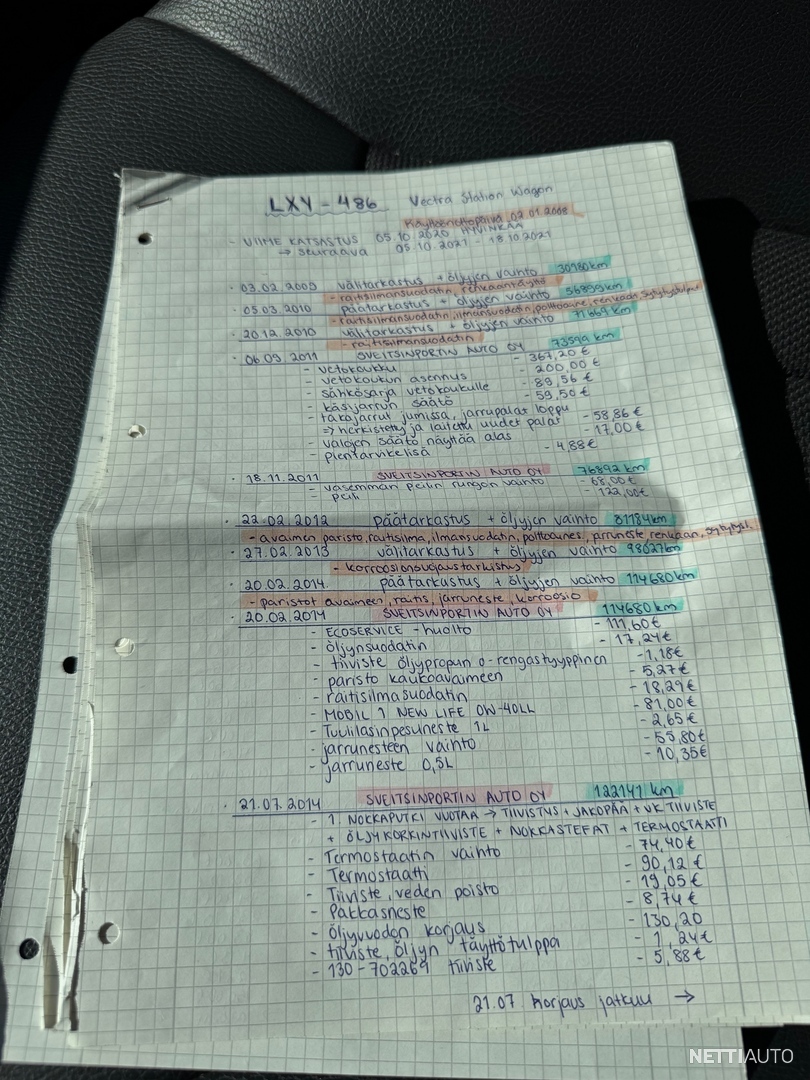 LXY-486 Vectra Station Wagon
Käyttöönottopäivä 02.01.2008
- VIIME KATSASTUS 05.10.2020 HYVINKÄÄ
⇒ seuraava 05.10.2021 - 18.10.2021
· 03.02.2009 välitarkastus + öljyjen vaihto 30980km
- raitisilmansuodatin, renkaantäyttö
· 05.03.2010 päätarkastus + öljyjen vaihto 56899km
- raitisilmansuodatin, ilmansuodatin, polttoaine, renkaan, sytytystulpat
· 20.12.2010 välitarkastus + öljyjen vaihto 71669km
- raitisilmansuodatin
· 06.09.2011 SVEITSINPORTIN AUTO OY 73599 km
- vetokoukku - 367,20 €
- vetokoukun asennus - 200,00 €
- sähkösarja vetokoukulle - 89,56 €
- käsijarrun säätö - 59,50 €
- takajarrut jumissa, jarrupalat loppu
⇒ herkistetty ja laitettu uudet palat - 58,86 €
- valojen säätö näyttää alas - 17,00 €
- pientarvikelisä - 4,88 €
· 18.11.2011 SVEITSINPORTIN AUTO OY 76892 km
- vasemman peilin rungon vaihto - 68,00 €
- peili - 122,00€
· 22.02.2012 päätarkastus + öljyjen vaihto 81184km
- avaimen paristo, raitisilma, ilmansuodatin, polttoaines., jarruneste, renkaan, sytytyst.
· 27.02.2013 välitarkastus + öljyjen vaihto 98027km
- korroosionsuojaustarkistus
· 20.02.2014. päätarkastus + öljyjen vaihto 114680 km
- paristot avaimeen, raitis, jarruneste, korroosio
· 20.02.2014 SVEITSINPORTIN AUTO OY 114680 km
- ECOSERVICE -huolto - 111,60€
- öljynsuodatin - 17,24€
- tiiviste öljypropun o-rengastyyppinen -1,18€
- paristo kaukoavaimeen - 5,27€
- raitisilmasuodatin - 18,29€
- MOBIL 1 NEW LIFE 0W-40LL - 81,00 €
- Tuulilasinpesuneste 1L - 2,65€
- jarrunesteen vaihto - 55,80€
- jarruneste 0,5L - 10,35€
· 21.07.2014 SVEITSINPORTIN AUTO OY 122141 km
- 1. NOKKAPUTKI VUOTAA → TIIVISTUS + JAKOPÄÄ + VK TIIVISTE
+ ÖLJYKORKINTIIVISTE + NOKKASTEFAT + TERMOSTAATTI
- Termostaatin vaihto - 74,40€
- Termostaatti - 90,12 €
- Tiiviste, veden poisto - 19,05€
- Pakkasneste - 8,74 €
- öljyvuodon korjaus - 130,20
- tiiviste, öljyn täyttötulppa - 1,24€
- 130-702269 tiiviste - 5,88€
21.07 korjaus jatkuu →
NETTIAUTO